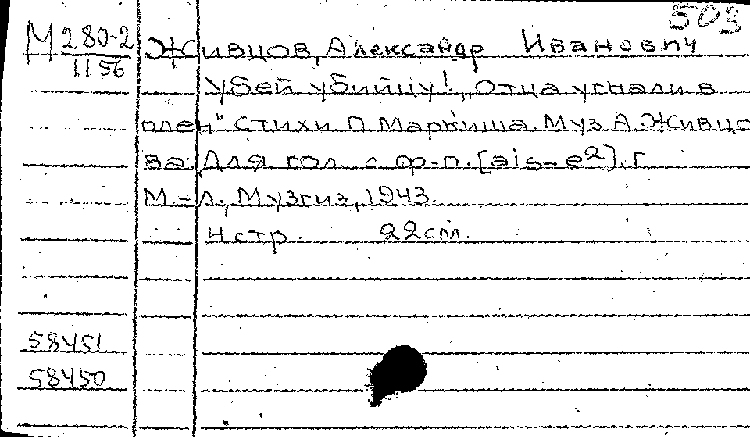 503
М 280-2
1156
Живцов, Александр Иванович
Убей убийцу! "Отца угнали в
плен" Стихи П. Маркиша. Муз. А. Живцо
ва. Для гол. с ф-п. [ais-e2]. г
М.-Л., Музгиз, 1943.
4 стр. 22 см.
58451
58450